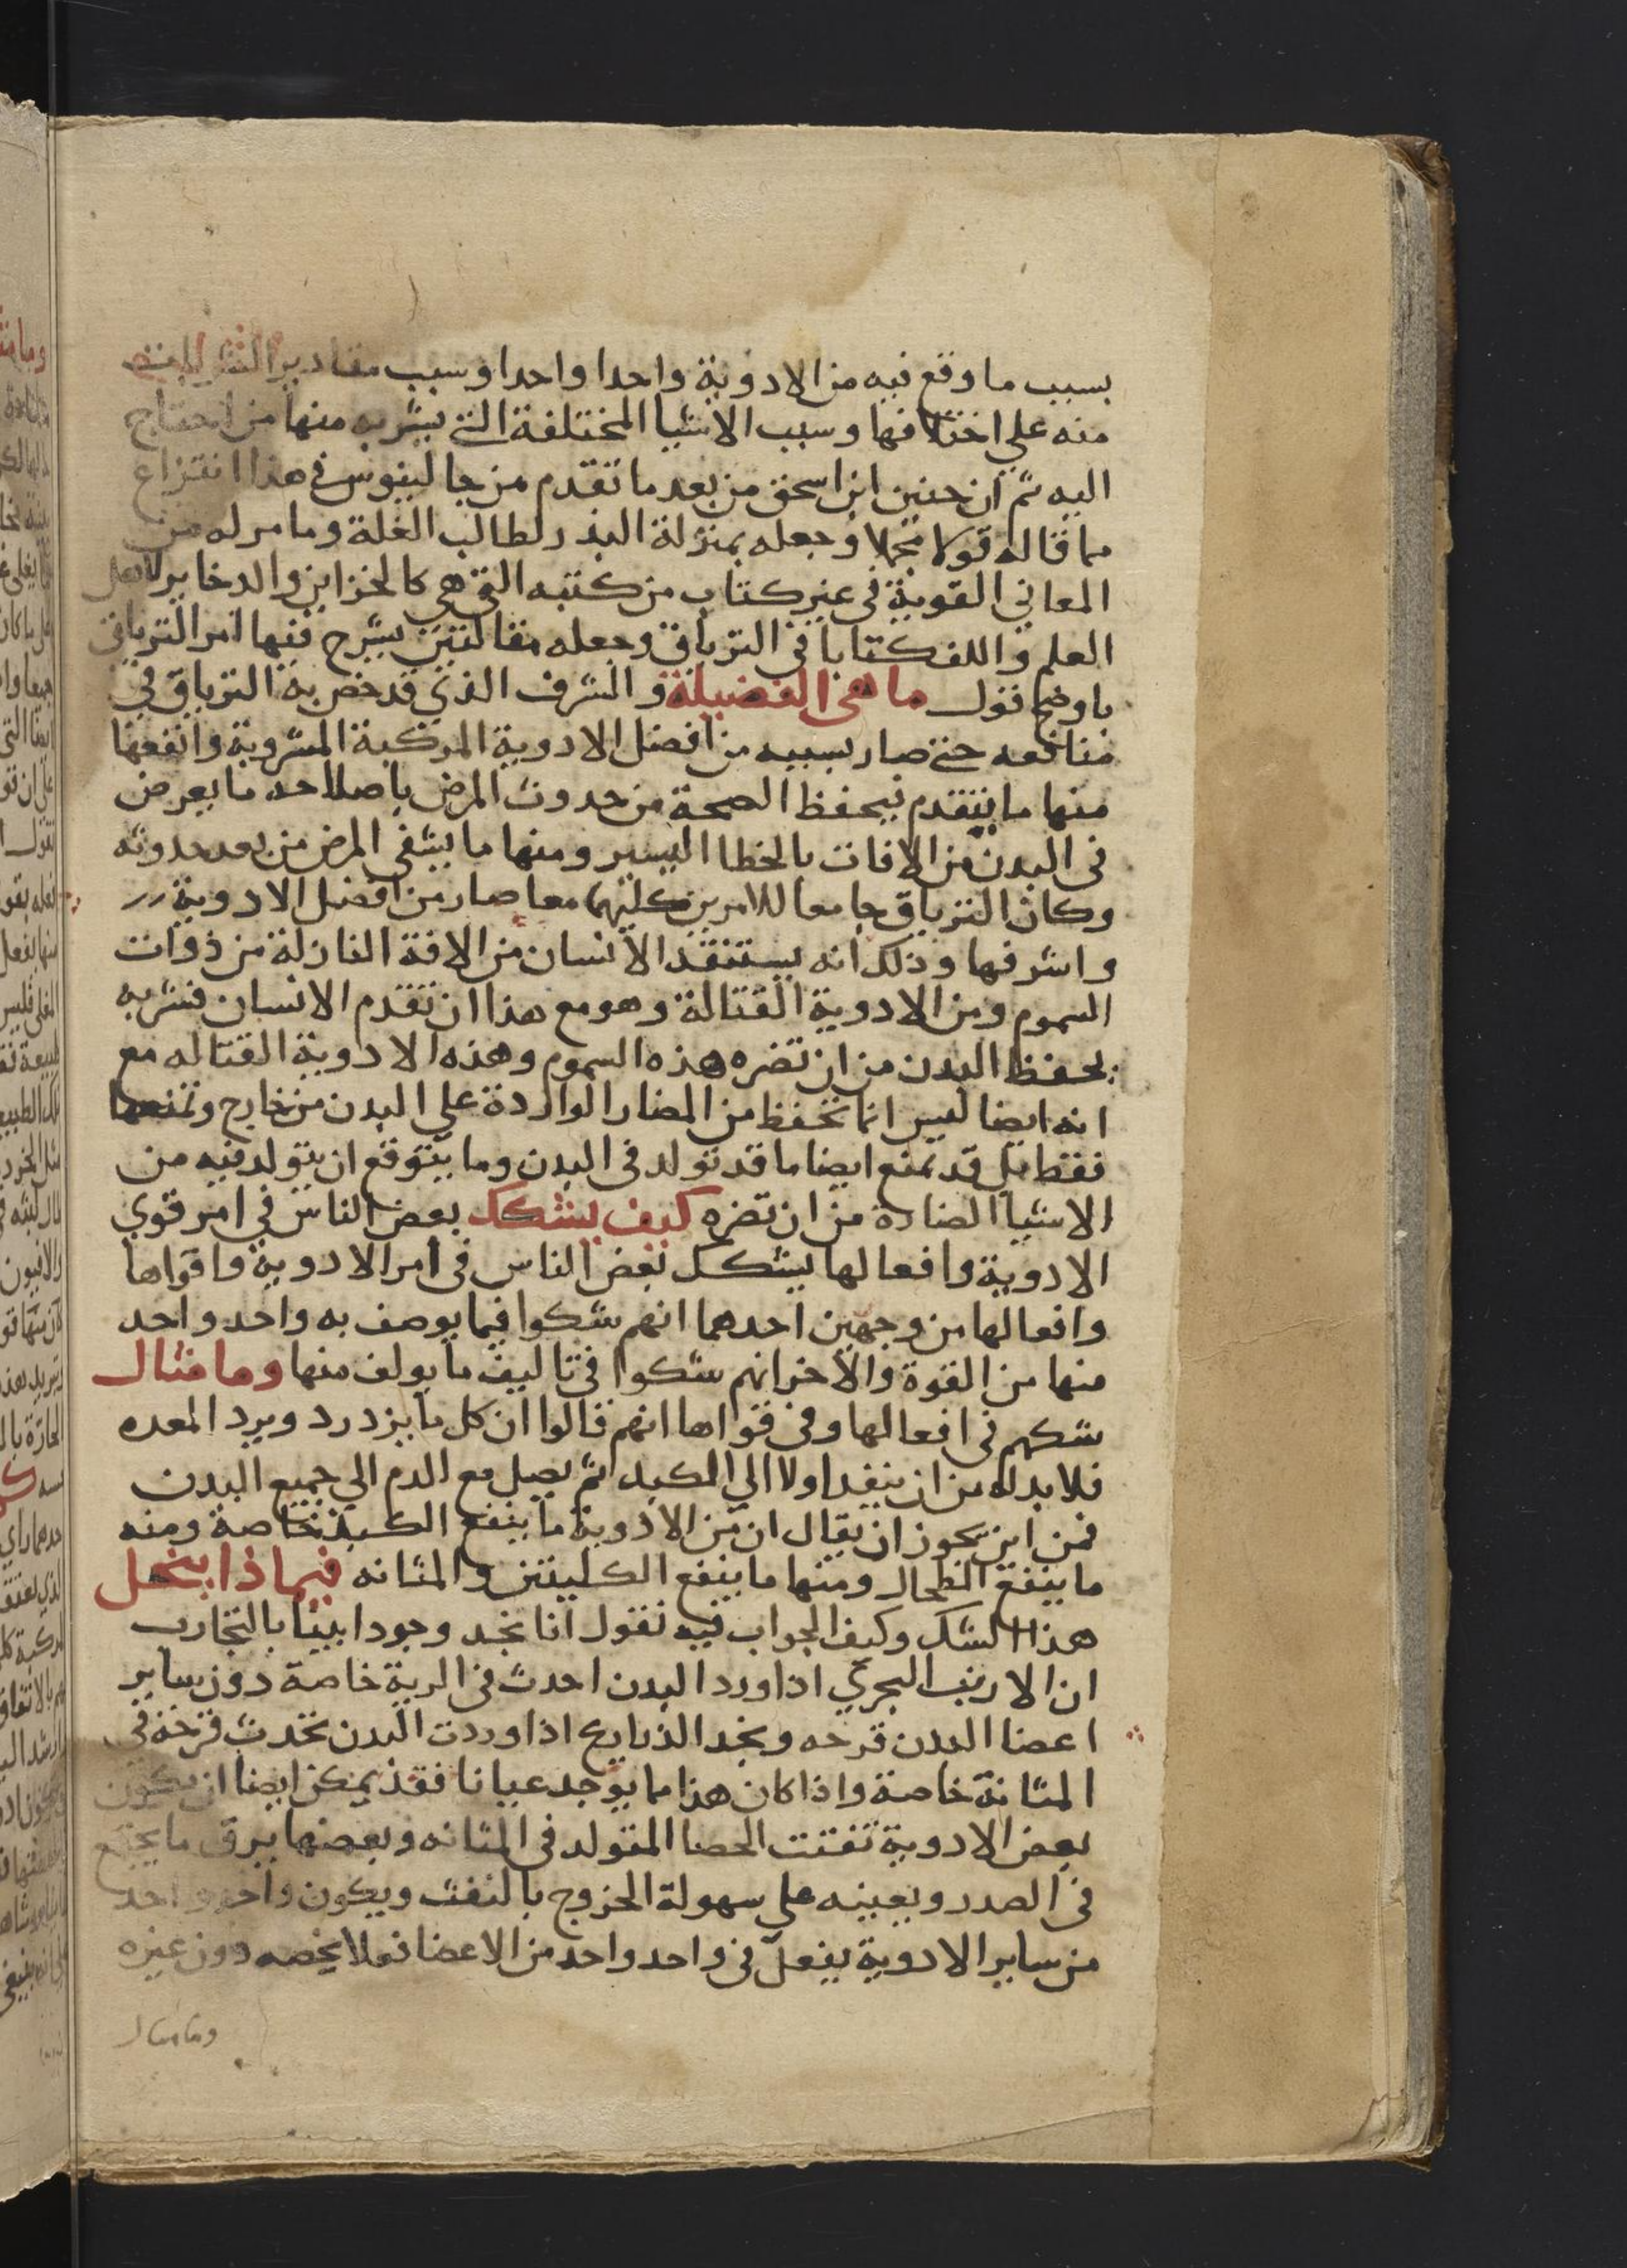 بسبب ما وقع فيه من الادوية واحدا واحدا وسبب مقادير الشربات
منه علي اختلافها وسبب الاشيا المختلفة التي يشربه منها من احتاج
اليه ثم ان حنين ابن اسحق من بعد ما تقدم من جالينوس في هذا انتزاع
مما قاله قولا مجملا وجعله بمنزلة البذر لطالب الغلة وما مر له من
المعاني القوية في غير كتاب من كتبه التي هي كالخزاين والدخاير لاهل
العلم واللف كتابا في الترياق وجعله مقالتين يشرح فيها امر الترياق
باوضح قول ما هي الفضيلة والشرف الذي قد خص به الترياق في
منافعه حتي صار بسببه من افضل الادوية المركبة المشروبة وانفعها
منها ما يتقدم بحفظ الصحة من حدوث المرض باصلاحه ما يعرض
في البدن من الافات بالخطا اليسير ومنها ما يشفي المرض من بعد حدوثه
وكان الترياق جامعا للامرين كليهما معا صار من افضل الادوية
واشرفها وذلك انه يستنقذ الانسان من الافة النازلة من ذوات
السموم ومن الادوية القتالة وهو مع هذا ان تقدم الانسان فشربه
يحفظ البدن من ان تضره هذه السموم وهذه الادوية القتاله مع
انه ايضا ليس انما تحفظ من المضار الواردة علي البدن من خارج وتمنعها
فقط بل قد تمنع ايضا ما قد تولد في البدن وما يتوقع ان يتولد فيه من
الاشيا الضارة من ان تضره كيف يشكك بعض الناس في امر قوي
الادوية وافعالها يشكل بعض الناس في امر الادوية واقواها
وافعالها من وجهين احدهما انهم شكوا فيما يوصف به واحد واحد
منها من القوة والاخر انهم شكوا في تاليف ما يولف منها وما مثال
شكهم في افعالها وفي قواها انهم قالوا ان كل ما يزدرد ويرد المعده
فلا بد له من ان ينفد اولا الي الكبد ثم يصل مع الدم الي جميع البدن
فمن اين يجوز ان يقال ان من الادوية ما ينفع الكبد خاصة ومنه
ما ينفع الطحال ومنها ما ينفع الكليتين والمثانه فبماذا ينحل
هذا الشك وكيف الجواب فيه نقول انا نجد وجودا بينا بالتجارب
ان الارنب البحري اذا ورد البدن احدث في الرية خاصة دون ساير
اعضا البدن قرحه ونجد الذراريح اذا وردت البدن تحدث قرحة في
المثانة خاصة واذا كان هذا مما يوجد عيانا فقد يمكن ايضا ان يكون
بعض الادوية تفتت الحصا المتولد في المثانه وبعضها يرق ما يجتمع
في الصدر ويعينه علي سهولة الخروج بالنفث ويكون واحد واحد
من ساير الادوية يفعل في واحد واحد من الاعضا فعلا يخصه دون غيره
وما مثال